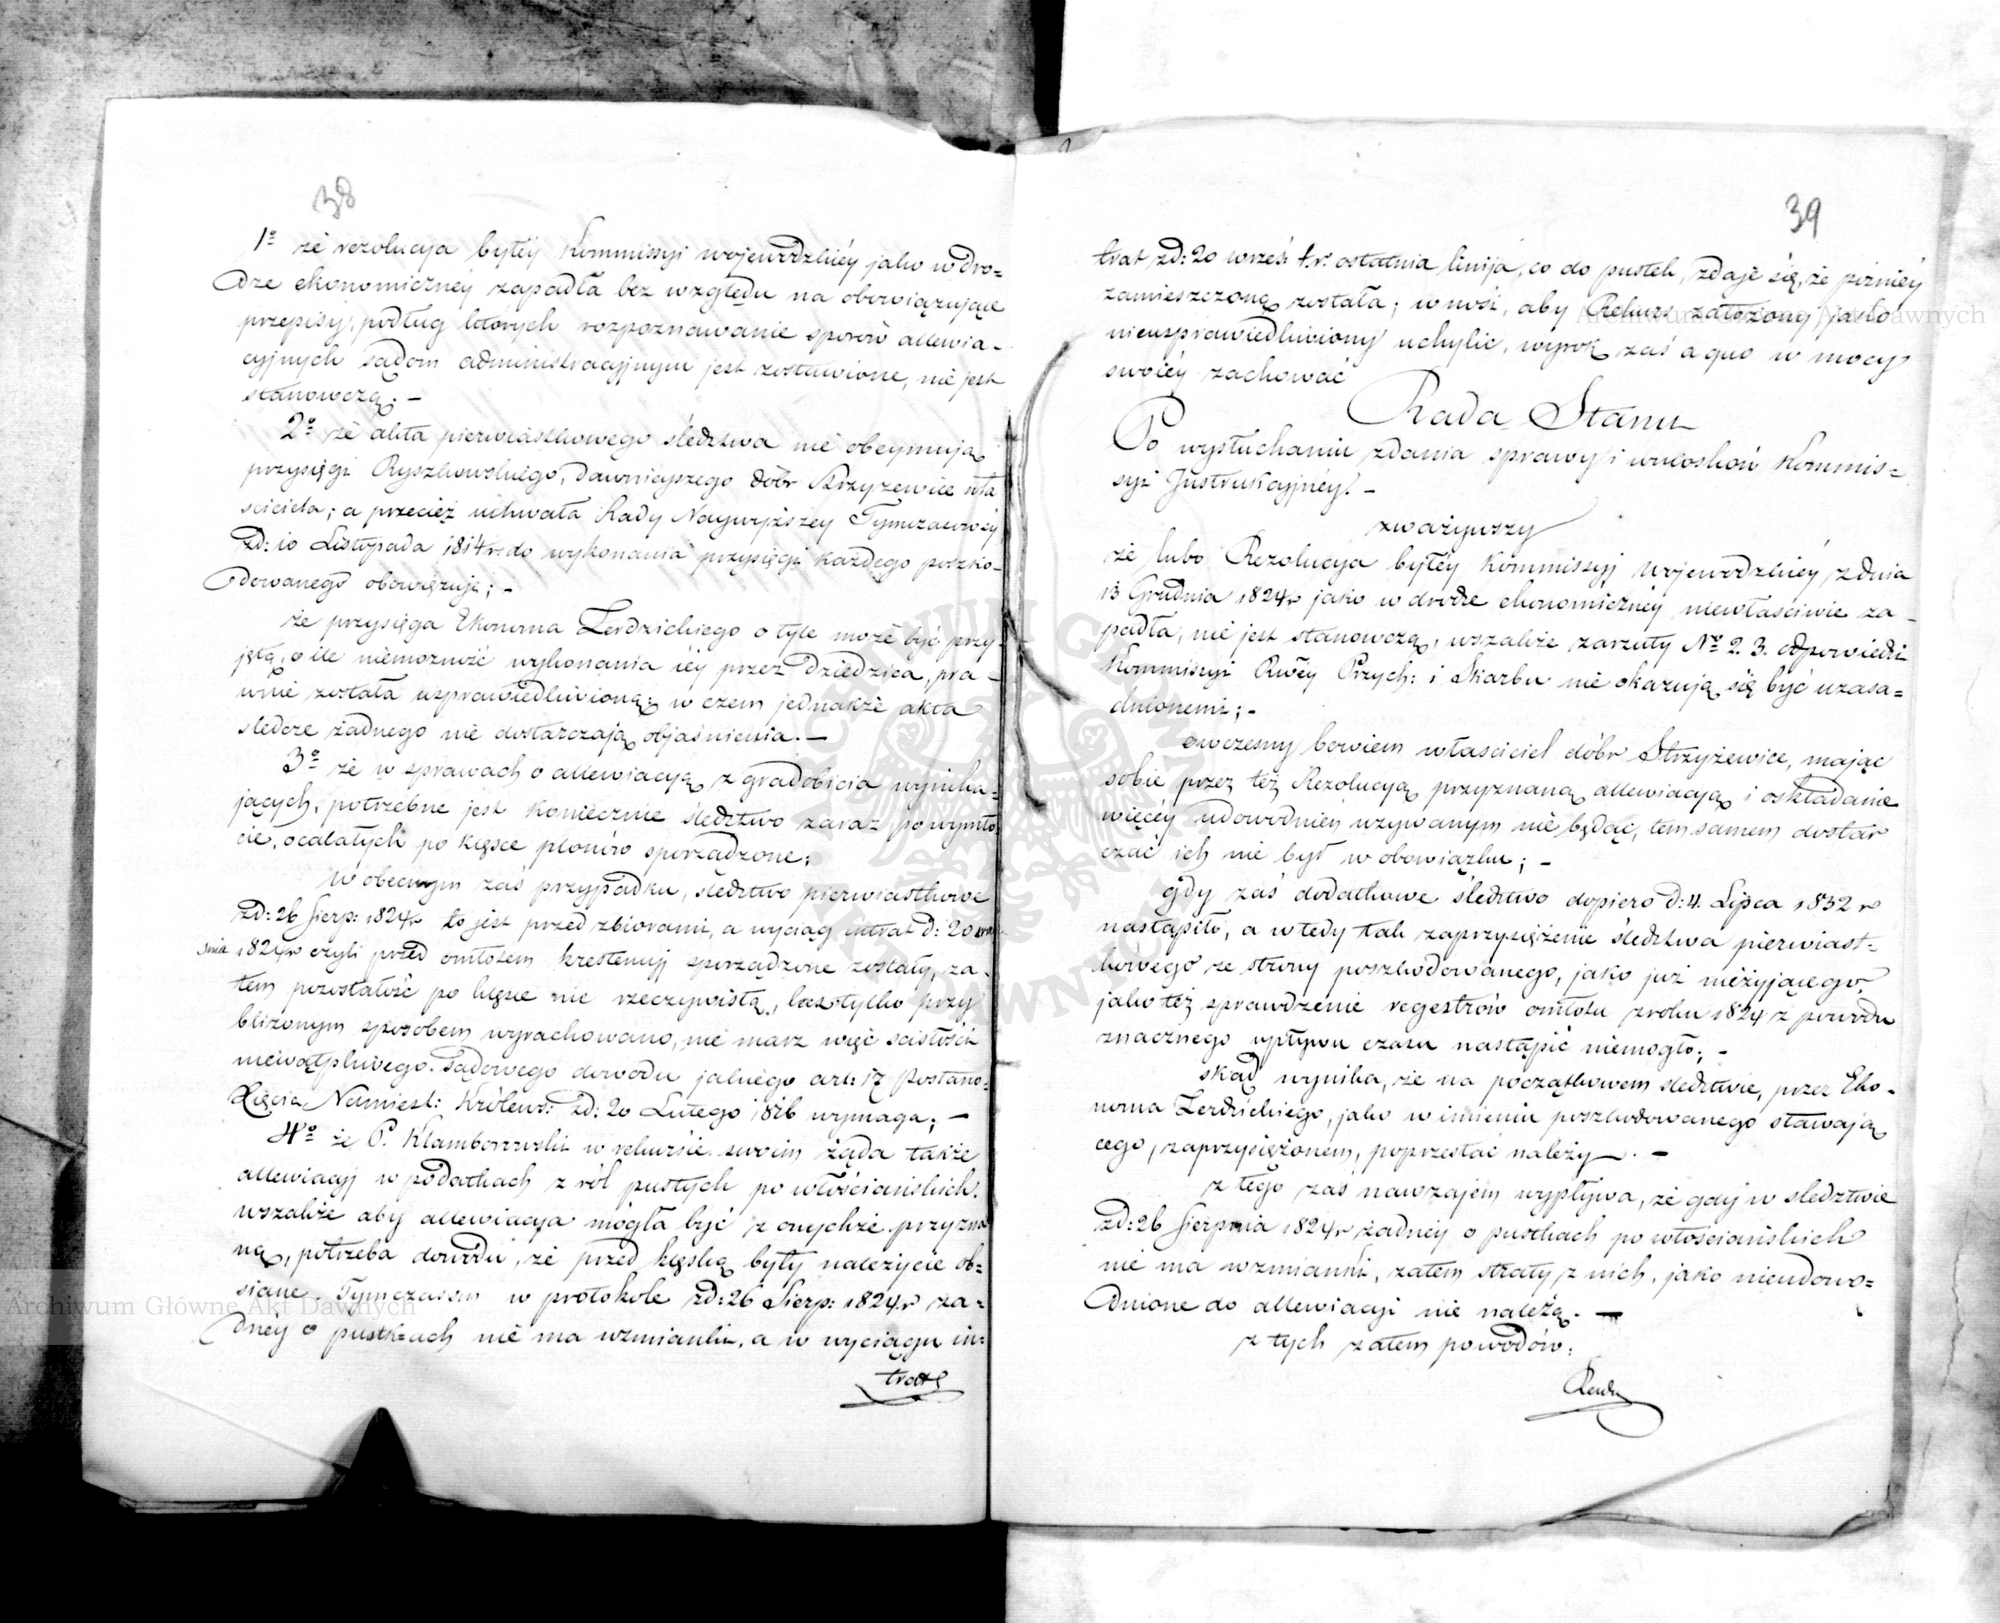 38
1º że rezolucya byłéy Kommissyi wojewódzkiéy jako w dro=
dze ekonomicznéy zapadła bez względu na obowiązujące
przepisy, podług których rozpoznawanie sporów allewia-
cyjnych sądom administracyjnym jest zostawione, nie jest
stanowczą. –
2º że akta pierwiastkowego śledztwa nie obeymują
przysięgi Ryszkowskiego, dawnieyszego dóbr Krzyzewice wła
ściciela; a przecież uchwała Rady Naywyższey Tymczasowéy
zd: 10 Listopada 1814 r. do wykonania przysięgi każdego poszko-
dowanego obowięzuje; –
że przysięga Ekonoma Zerdzickiego o tyle może być przy-
jętą, o ile niemożność wykonania iéy przez Dziedzica, pra-
wnie została usprawiedliwioną; w czem jednakże akta
śledcze żadnego nie dostarczają objaśnienia. –
3º że w sprawach o allewiacyą z gradobicia wynika-
jących, potrzebne jest koniecznie śledztwo zaraz po wymło-
cie, ocalałych po klęsce plonów sporządzone;
W obecnym zaś przypadku, śledztwo pierwiastkowe
zd: 26 Sierp: 1824 r to jest przed zbiorami, a wyciąg intrat d: 20 wrze
śnia 1824 r czyli przed omłotem krestencyj sporządzone zostały, za-
tem pozostałość po klęsce nie rzeczywistą, lecz tylko przy
bliżonym sposobem wyrachowano, nie masz więc ścisłości
niewątpliwego Sądowego dowodu jakiego art: 17 Postano:
Xięcia Namiest: Królews: zd: 20 Lutego 1816 wymaga; –
4º że P. Klamborowski w rekursie swoim żąda także
allewiacyj w podatkach z ról pustych po włościańskich.
wszakże aby allewiacya mogła być z onychże przyzna
ną, potrzeba dowodu, że przed klęską były należycie ob=
siane. Tymczasem w protokole zd: 26 Sierp: 1824 r ża=
dnéy o pustkach nie ma wzmianki, a w wyciągu in:
trat
39
trat zd: 20 wrześ: t.r. ostatnia linija, co do pustek, zdaje się, że późniéy
zamieszczoną została; wnosi, aby Rekurs założony jako
nieusprawiedliwiony uchylić, wyrok zaś a quo w mocy
swoiéy zachować
Rada Stanu
Po wysłuchaniu zdania sprawy i wniosków Kommis=
syi Instrukcyjnéy. –
zważywszy
że lubo Rezolucya byłéy Kommissyj wojewódzkiéy z dnia
13 Grudnia 1824 r jako w drodze ekonomicznéy niewłaściwie za-
padła, nie jest stanowczą, wszakże zarzuty Nº 2. 3. odpowiedzi
Kommissyi Rwéy Przych: i Skarbu nie okazują się być uzasa=
dnionemi; –
owczesny bowiem właściciel dóbr Strzyżewice, mając
sobie przez też Rezolucyą przyznaną allewiacyą i o składanie
więcéy udowodnień wzywanym nie będąc, tem samem dostar
czać ich nie był w obowiązku; –
gdy zaś dodatkowe śledztwo dopiero d: 4 Lipca 1832 r
nastąpiło, a wtedy tak zaprzysiężenie śledztwa pierwiast-
kowego ze strony poszkodowanego, jako już nieżyjącego,
jako też sprawdzenie regestrów omłotu z roku 1824 z powodu
znacznego upływu czasu nastąpić niemogło; –
skąd wynika, że na początkowem śledztwie, przez Eko-
noma Zerdzickiego, jako w imieniu poszkodowanego stawają
cego, zaprzysiężonem, poprzestać należy. –
z tego zaś nawzajem wypływa, że gdy w śledztwie
zd: 26 Sierpnia 1824 r żadnéy o pustkach po włościańskich
nie ma wzmianki, zatem straty z nich, jako nieudowo=
dnione do allewiacyi nie należą. –
z tych zatem powodów.
Archiwum Główne Akt Dawnych
Archiwum Główne Akt Dawnych